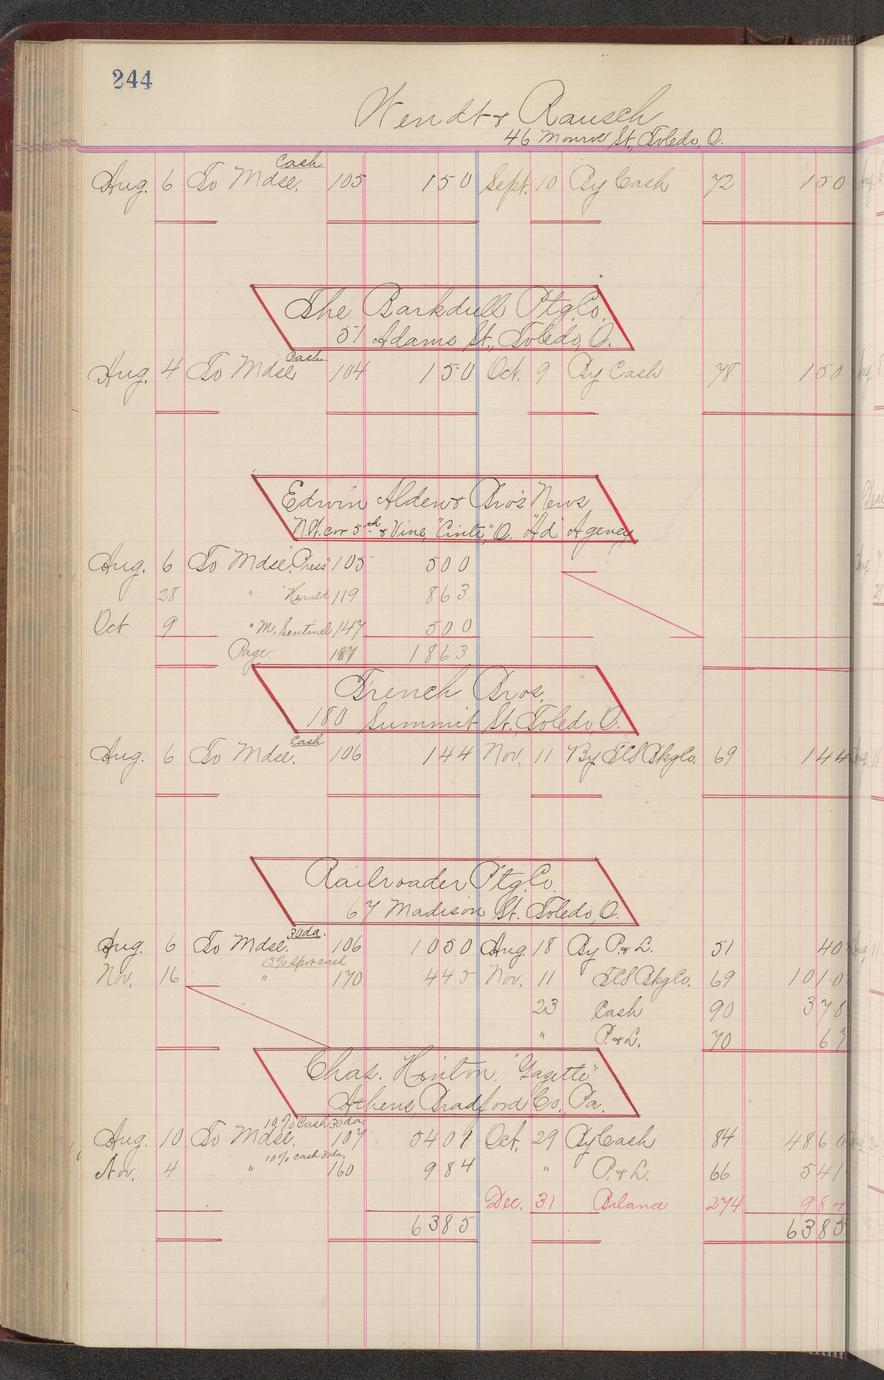 244
Wendt & Rausch
46 Monroe St, Toledo, O.
Cash
Aug. 6 To Mdse. 105 150 Sept. 10 By Cash 72 150
The Barkdull Ptg. Co.
51 Adams St., Toledo, O.
Cash
Aug. 4 To Mdse 104 150 Oct. 9 By Cash 78 150
Edwin Alden & Bro's News
N.W. cor 5th & Vine, "Cinti", O. "Ad" Agency
Aug. 6 To Mdse. "Press" 105 500
28 " "Herald 119 863
Oct 9 " M. Sentinel 147 500
Page 187 1863
French Bros.
180 Summit St., Toledo, O.
Cash
Aug. 6 To Mdse. 106 144 Nov. 11 By TCS Bkg Co. 69 144
Railroader Ptg. Co.
67 Madison St. Toledo, O.
30 da.
Aug. 6 To Mdse. 106 1050 Aug. 18 By P. & L. 51 40
15% Spot cash
Nov. 16 " 170 445 Nov. 11 TCS Bkg Co. 69 1010
23 Cash 90 378
" P. & L. 70 67
Chas. Hinton. "Gazette"
Athens Bradford Co., Pa.
10% Cash 30 da.
Aug. 10 To Mdse. 107 5401 Oct. 29 By Cash 84 4860
10% cash 30 da.
Nov. 4 " 160 984 " P. & L. 66 541
Dec. 31 Balance 274 984
6385 6385